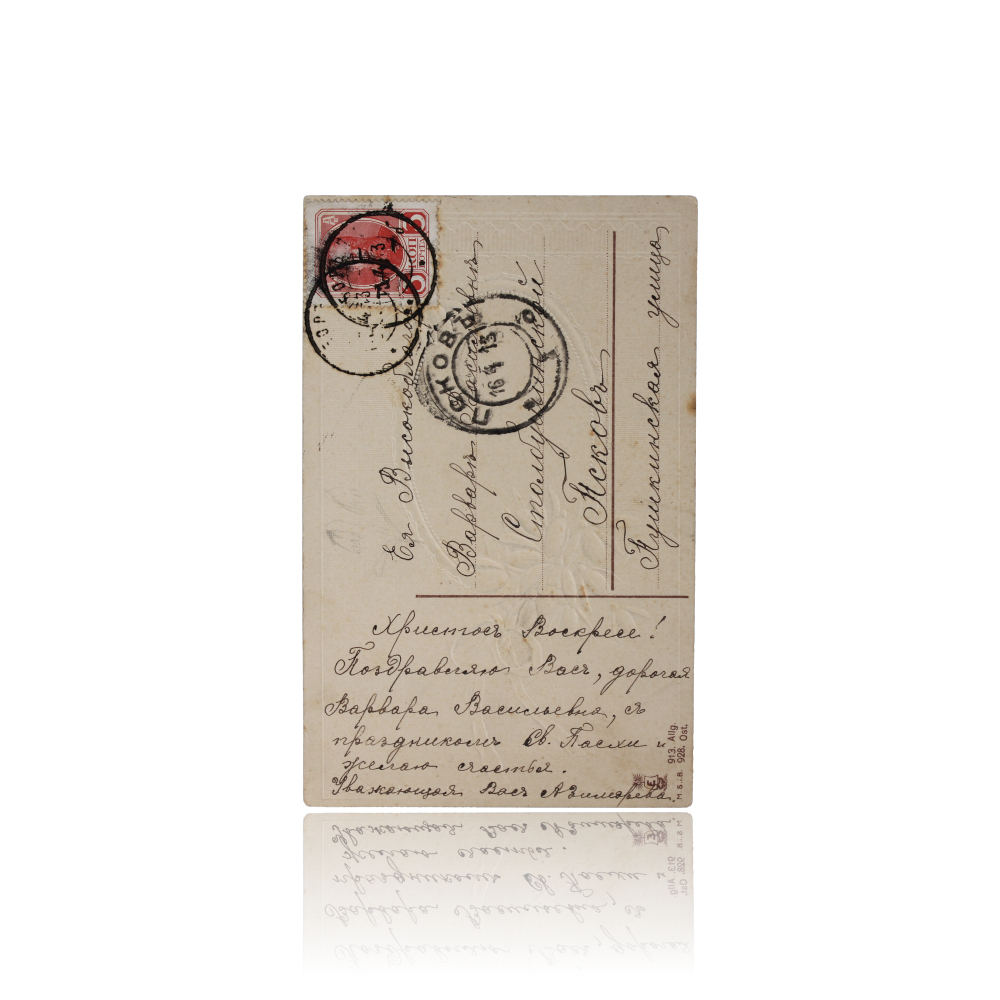 Ея Высокоблагор.
Варварѣ Васильевнѣ
Столбушинской
Псковъ
Пушкинская улица
ПСКОВЪ
16 4 13
Христосъ Воскресе!
Поздравляю Васъ, дорогая
Варвара Васильевна, съ
праздникомъ Св. Пасхи и
желаю счастья.
Уважающая Васъ А.Зимарева.
913. Allg.
M.S.i.B. 928. Ost.